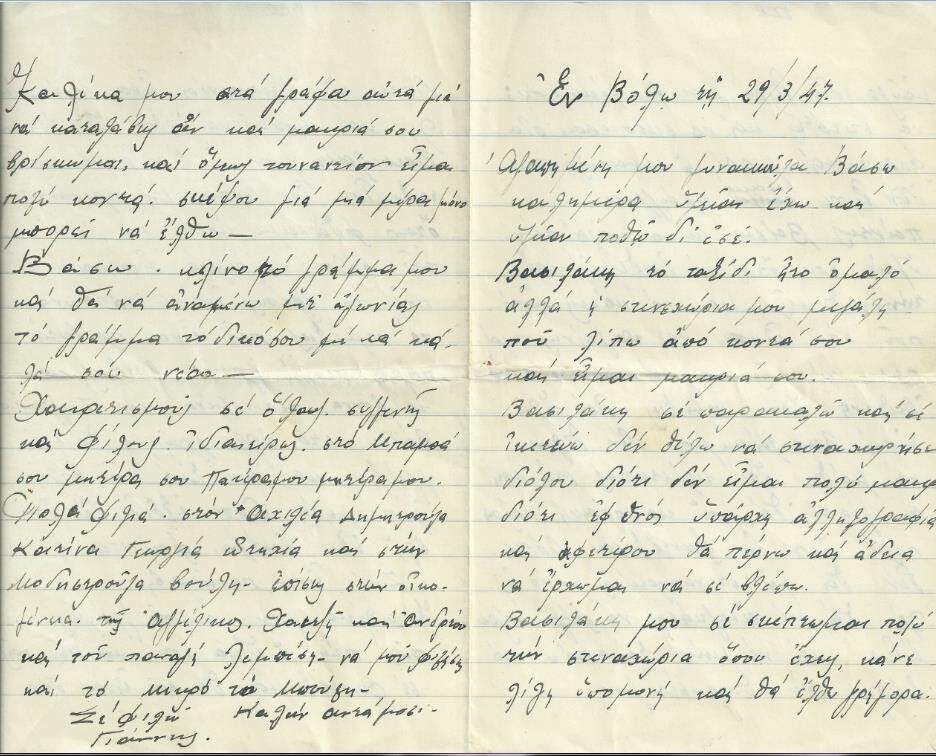 Ἐν Βόλῳ τῇ 29/3/47.
Ἀγαπημένη μου γυναικούλα Βάσω
καλημέρα ὑγείαν ἔχω καὶ
ὑγείαν ποθῶ δι ἐσέ.
Βασιλάκη τό ταξίδι ἦτο ὁμαλό
ἀλλά ἡ στενεχώρια μου μεγάλη
ποῦ λίπω ἀπό κοντά σου
καὶ εἶμαι μακριά σου.
Βασιλάκη σέ παρακαλῶ καὶ σέ
ἱκετεύω δέν θέλω νά στεναχωρῆσε
διόλου διότι δέν εἶμαι πολύ μακρ
διότι ὑπάρχη ἀλληλογραφία
καὶ θά πέρνω καὶ ἄδεια
νά ἔρχωμαι νά σέ βλέπω.
Βασιλάκη μου σέ σκέπτωμαι πολύ
τήν στεναχώρια ὅπου ἔχεις, κάνε
λίγη ὑπομονή καὶ θά ἔλθω γρήγορα.
μου αὐτά γράφω αὐτά γιά
νά καταλάβης ἄν καί μακριά σου
βρίσκωμαι, καί ὅμως τουναντίον εἶμαι
πολύ κοντά. σκέψου μιά μιά μέρα μόνο
μπορεῖ νά ἔλθω —
Βάσω. κλίνο τό γράμμα μου
καί θά νά ἀναμένω μέ ἀγωνίας
τό γράμμα τό δικό σου μέ τά κα-
λά σου νέα —
Χαιρετισμούς σέ ὅλους. συγγενῆς
καί φίλους. ἰδιαιτέρως. στό Μπαμπά
σου μητέρα σου Πατέραμου μητέραμου.
Πολλά φιλιά. στόν Ἀχιλέα Δημητρούλα
Κατίνα Γεωργία εὐτηχία καί στήν
Μοδηστρούλα ἐπίσης στήν οἰκο-
γένεια. τῆς Ἀγγέλικας. καί Ἀνδρέου
καί τόν νά μοῦ φιλήσης
καί τό μικρό τό
Σέ φιλῶ Καλήν ἀντάμωσι-
Γιάννης.